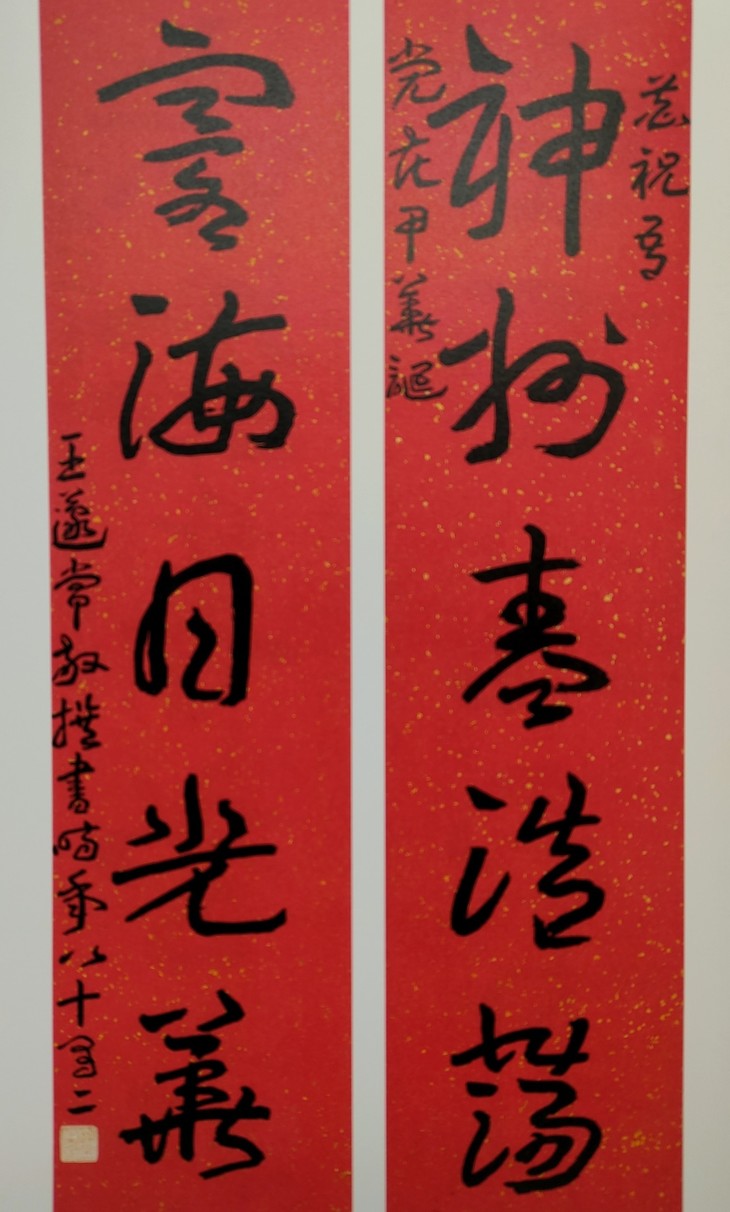 恭祝吾
神州春浩蕩
党花甲華誕
寰海日光華
王蘧常敬撰書時年八十有二